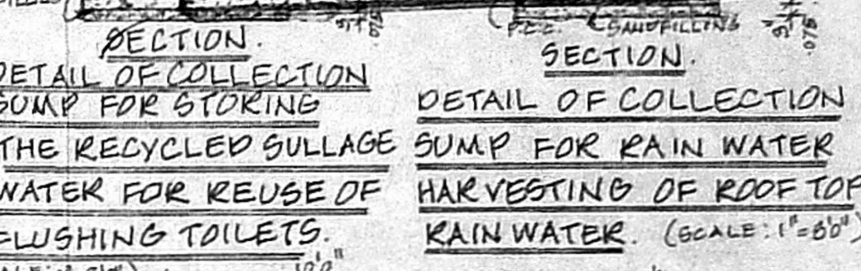 P.C.C. SANDFILLING
.075
SECTION.
DETAIL OF COLLECTION
SUMP FOR STORING
THE RECYCLED SULLAGE
WATER FOR REUSE OF
FLUSHING TOILETS.
SECTION.
DETAIL OF COLLECTION
SUMP FOR RAIN WATER
HARVESTING OF ROOF TOP
RAIN WATER. (SCALE: 1"=8'0")